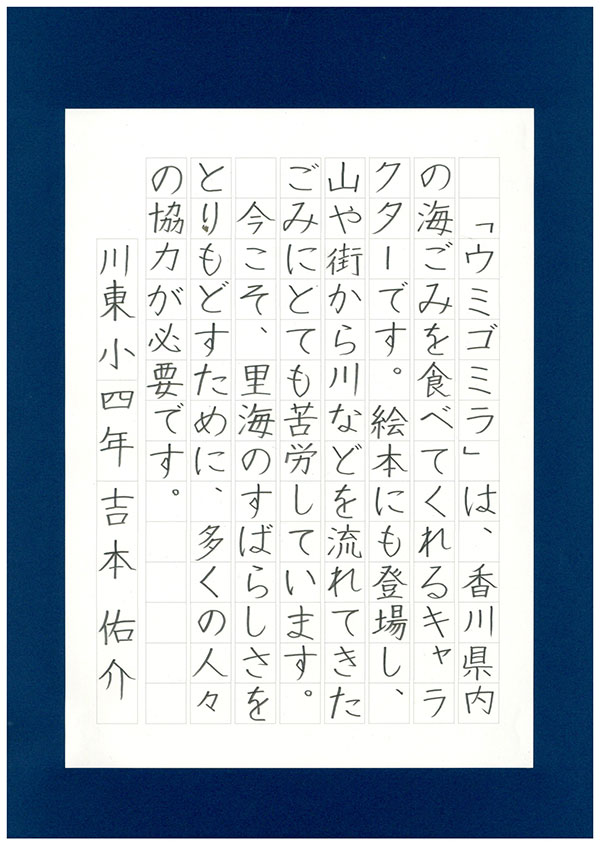 「ウミゴミラ」は、香川県内
の海ごみを食べてくれるキャラ
クターです。絵本にも登場し、
山や街から川などを流れてきた
ごみにとても苦労しています。
今こそ、里海のすばらしさを
とりもどすために、多くの人々
の協力が必要です。
川東小四年 吉本 佑介